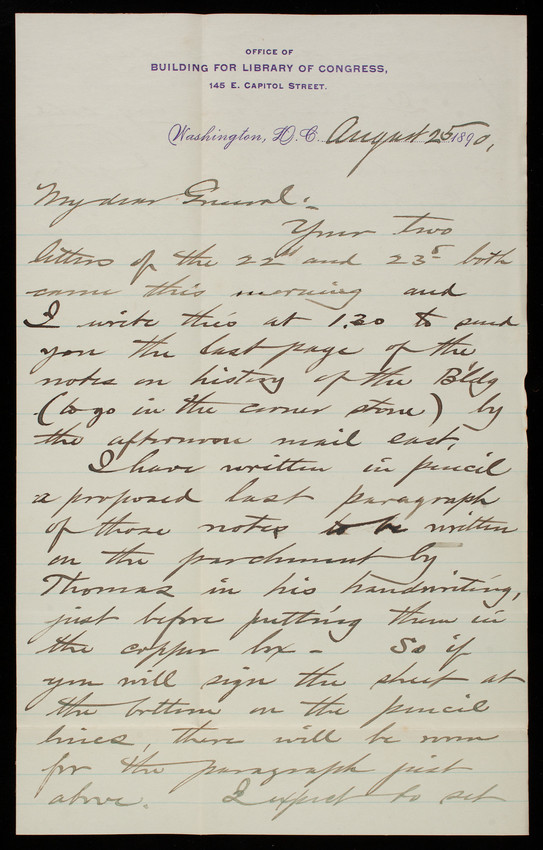 OFFICE OF
BUILDING FOR LIBRARY OF CONGRESS,
145 E. CAPITOL STREET.
Washington, D. C. August 25 1890,
My dear General:-
Your two
letters of the 22d and 23d both
came this morning and
I write this at 1.30 to send
you the last page of the
notes on history of the B'ldg
(to go in the corner stone) by
the afternoon mail east.
I have written in pencil
a proposed last paragraph
of those notes to be written
on the parchment by
Thomas in his handwriting,
just before putting them in
the copper box - So if
you will sign the sheet at
the bottom on the pencil
lines, there will be room
for the paragraph just
above. I expect to set